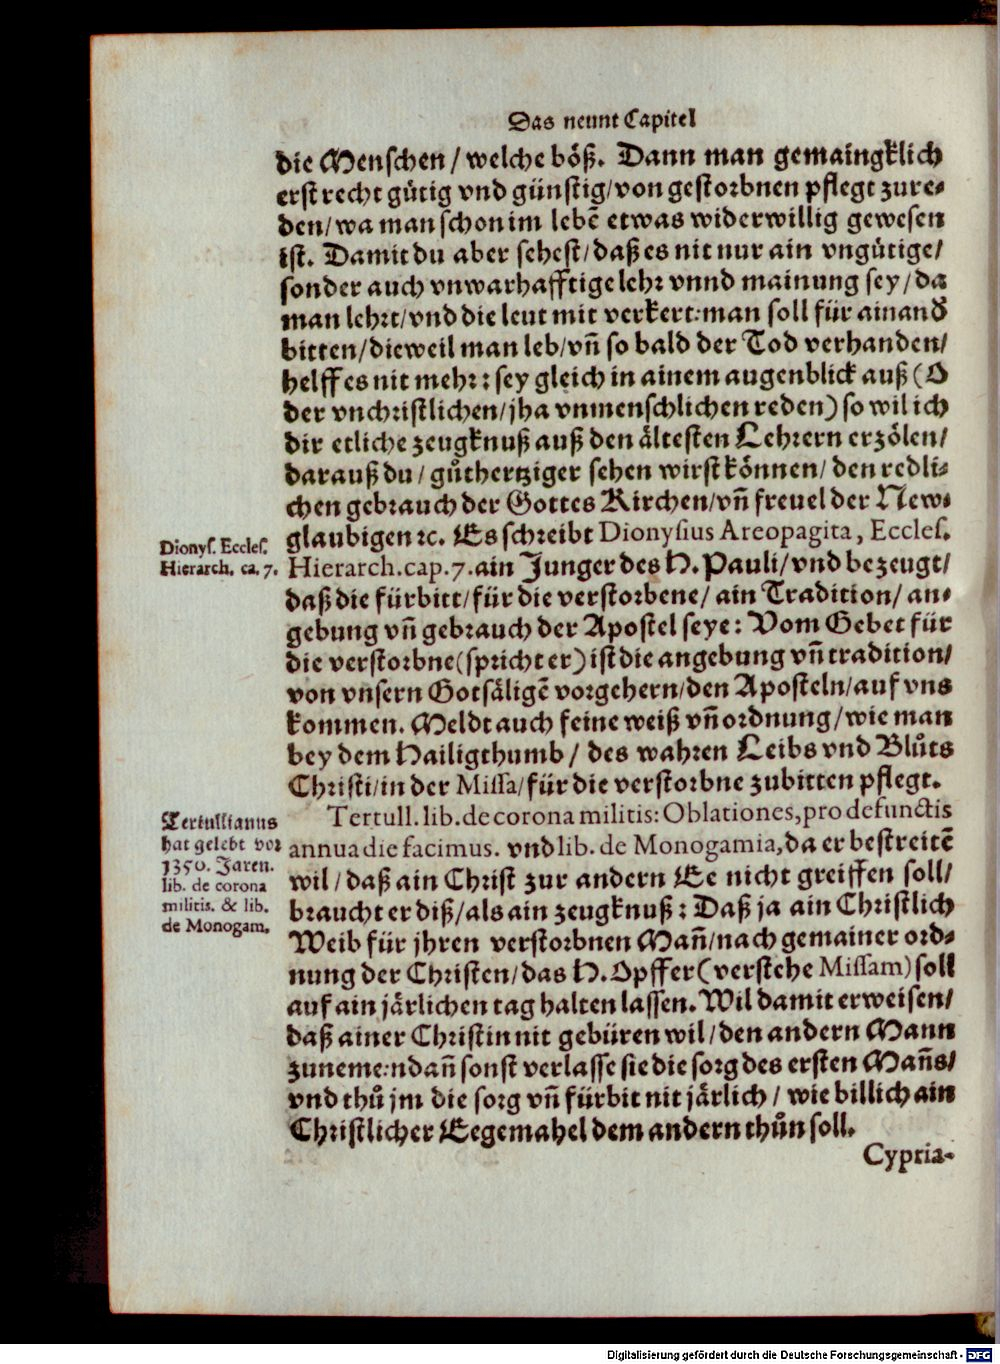 Das neunt Capitel
die Menschen / welche böß. Dann man gemaingklich
erst recht gůtig vnd günstig/von gestorbnen pflegt zure-
den/wa man schon im lebẽ etwas widerwillig gewesen
ist. Damit du aber sehest/daß es nit nur ain vngůtige/
sonder auch vnwarhafftige lehr vnnd mainung sey/da
man lehrt/vnd die leut mit verkert:man soll für ainand
bitten/dieweil man leb/vñ so bald der Tod verhanden/
helff es nit mehr: sey gleich in ainem augenblick auß (O
der vnchristlichen/jha vnmenschlichen reden) so wil ich
dir etliche zeugknuß auß den ältesten Lehrern erzölen/
darauß du/gůthertziger sehen wirst können/den redli-
chen gebrauch der Gottes Kirchen/vñ freuel der New-
glaubigen ꝛc. Es schreibt Dionysius Areopagita, Eccles.
Dionys. Eccles.
Hierarch. ca. 7.
Hierarch.cap.7.ain Junger des H. Pauli/vnd bezeugt/
daß die fürbitt/für die verstorbene/ ain Tradition/ an-
gebung vñ gebrauch der Apostel seye: Vom Gebet für
die verstorbne(spricht er)ist die angebung vñ tradition/
von vnsern Gotsäligẽ vorgehern/den Aposteln/auf vns
kommen. Meldt auch feine weiß vñ ordnung/wie man
bey dem Hailigthumb/ des wahren Leibs vnd Blůts
Christi/in der Missa/für die verstorbne zubitten pflegt.
Tertull. lib. de corona militis: Oblationes, pro defunctis
Tertullianus
hat gelebt vor
1350. Jaren.
lib. de corona
militis. & lib.
de Monogam.
annua die facimus. vnd lib. de Monogamia, da er bestreitẽ
wil/daß ain Christ zur andern Ee nicht greiffen soll/
braucht er diß/als ain zeugknuß: Daß ja ain Christlich
Weib für jhren verstorbnen Mañ/nach gemainer ord-
nung der Christen/das H. Opffer(verstehe Missam)soll
auf ain järlichen tag halten lassen. Wil damit erweisen/
daß ainer Christin nit gebüren wil/den andern Mann
zuneme:ndañ sonst verlasse sie die sorg des ersten Mañs/
vnd thů jm die sorg vñ fürbit nit järlich / wie billich ain
Christlicher Eegemahel dem andern thůn soll.
Cypria-
Digitalisierung gefördert durch die Deutsche Forschungsgemeinschaft - DFG